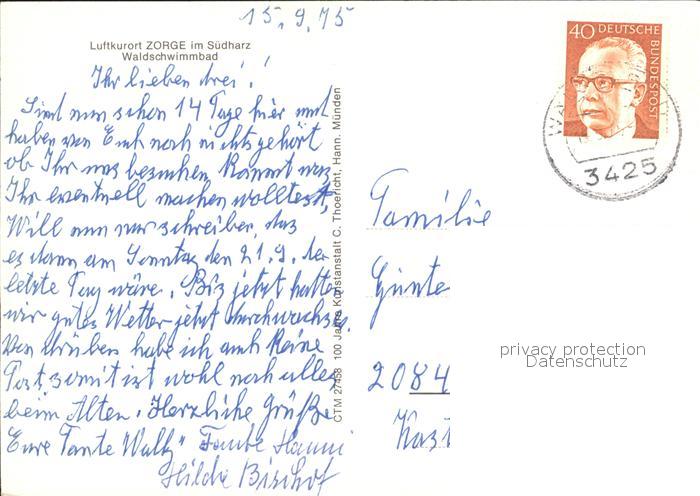 15.9.75
Luftkurort ZORGE im Südharz
Waldschwimmbad
Ihr lieben drei!
Sind nun schon 14 Tage hier und
haben von Euch noch nichts gehört
ob Ihr uns besuchen kommt was
Ihr eventuell machen wolltest,
Will nun nur schreiben, das
es dann am Sonntag den 21.9. der
letzte Tag wäre. Bis jetzt hatten
wir gutes Wetter jetzt durchwachsen,
Von drüben habe ich auch keine
Post, somit ist wohl noch alles
beim Alten. Herzliche Grüße
Eure Tante Wally Tante Hanni
Hilde Bischof
CTM 27458 100 Jahre Konstanstalt C. Thoericht, Hann. Münden
40 DEUTSCHE
BUNDESPOST
WA
3425
Familie
Günte
privacy protection
Datenschutz
2084